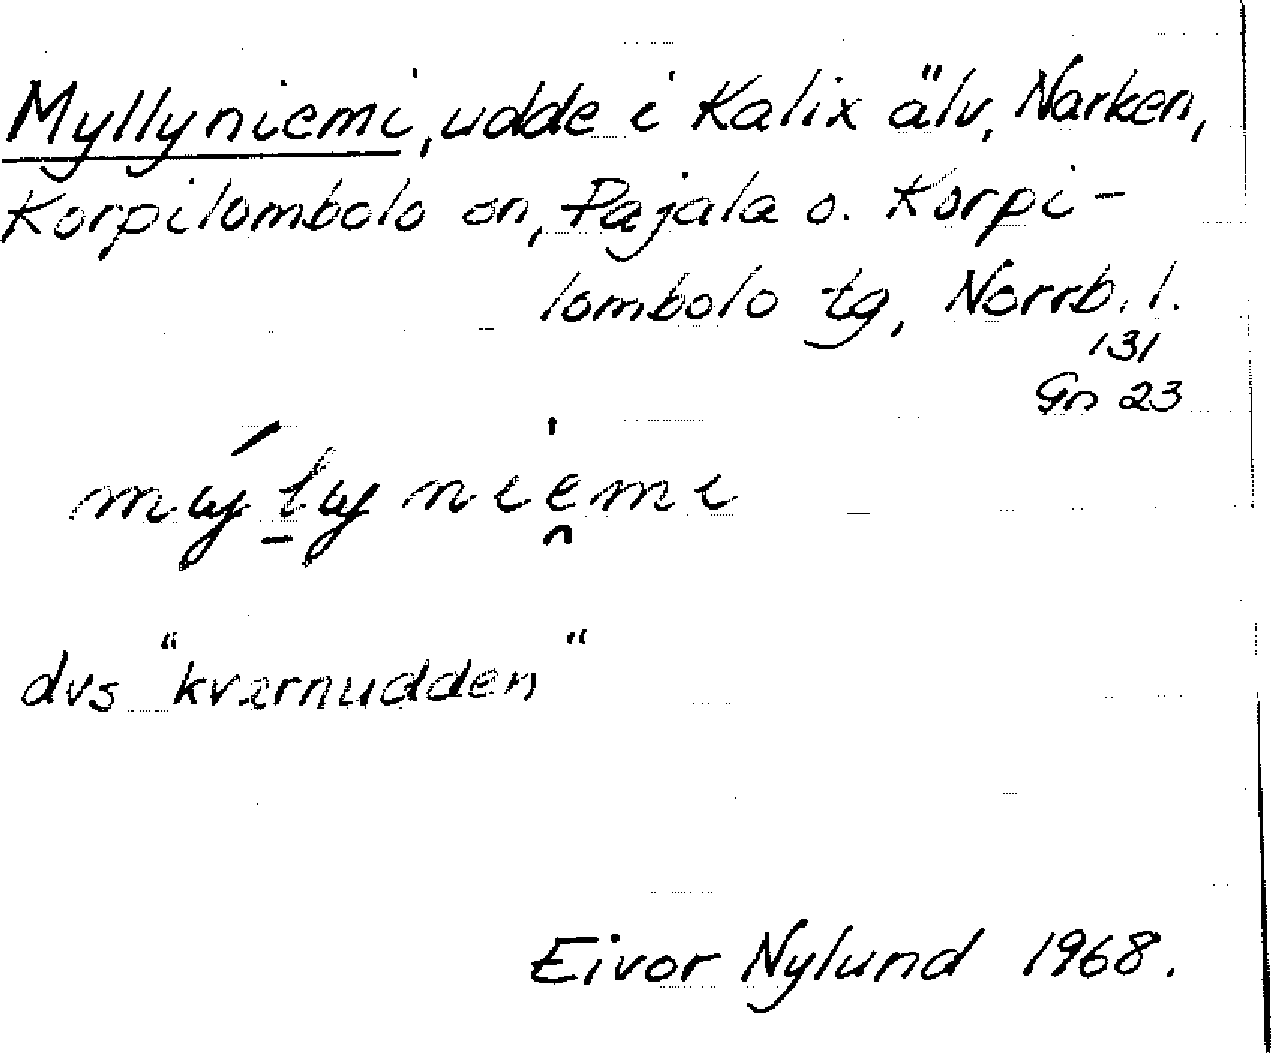 Myllyniemi, udde i Kalix älv, Narken,
Korpilombolo sn, Pajala o. Korpi-
lombolo tg, Norrb. l.
131
Gn 23
mýl̠yniemi
dvs "kvarnudden"
Eivor Nylund 1968.